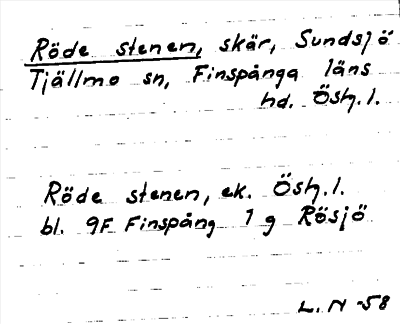 Röde stenen, skär, Sundsjö
Tjällmo sn, Finspånga läns
hd. Ösg.l.
Röde stenen, ek. Ösg.l.
bl. 9F Finspång 1 g Rösjö
L. N -58